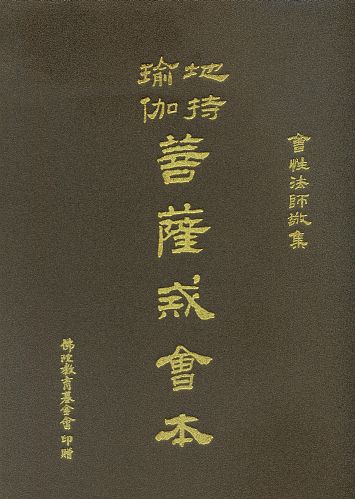 會性法師敬集
地持
瑜伽
菩薩戒會本
佛陀教育基金會 印贈